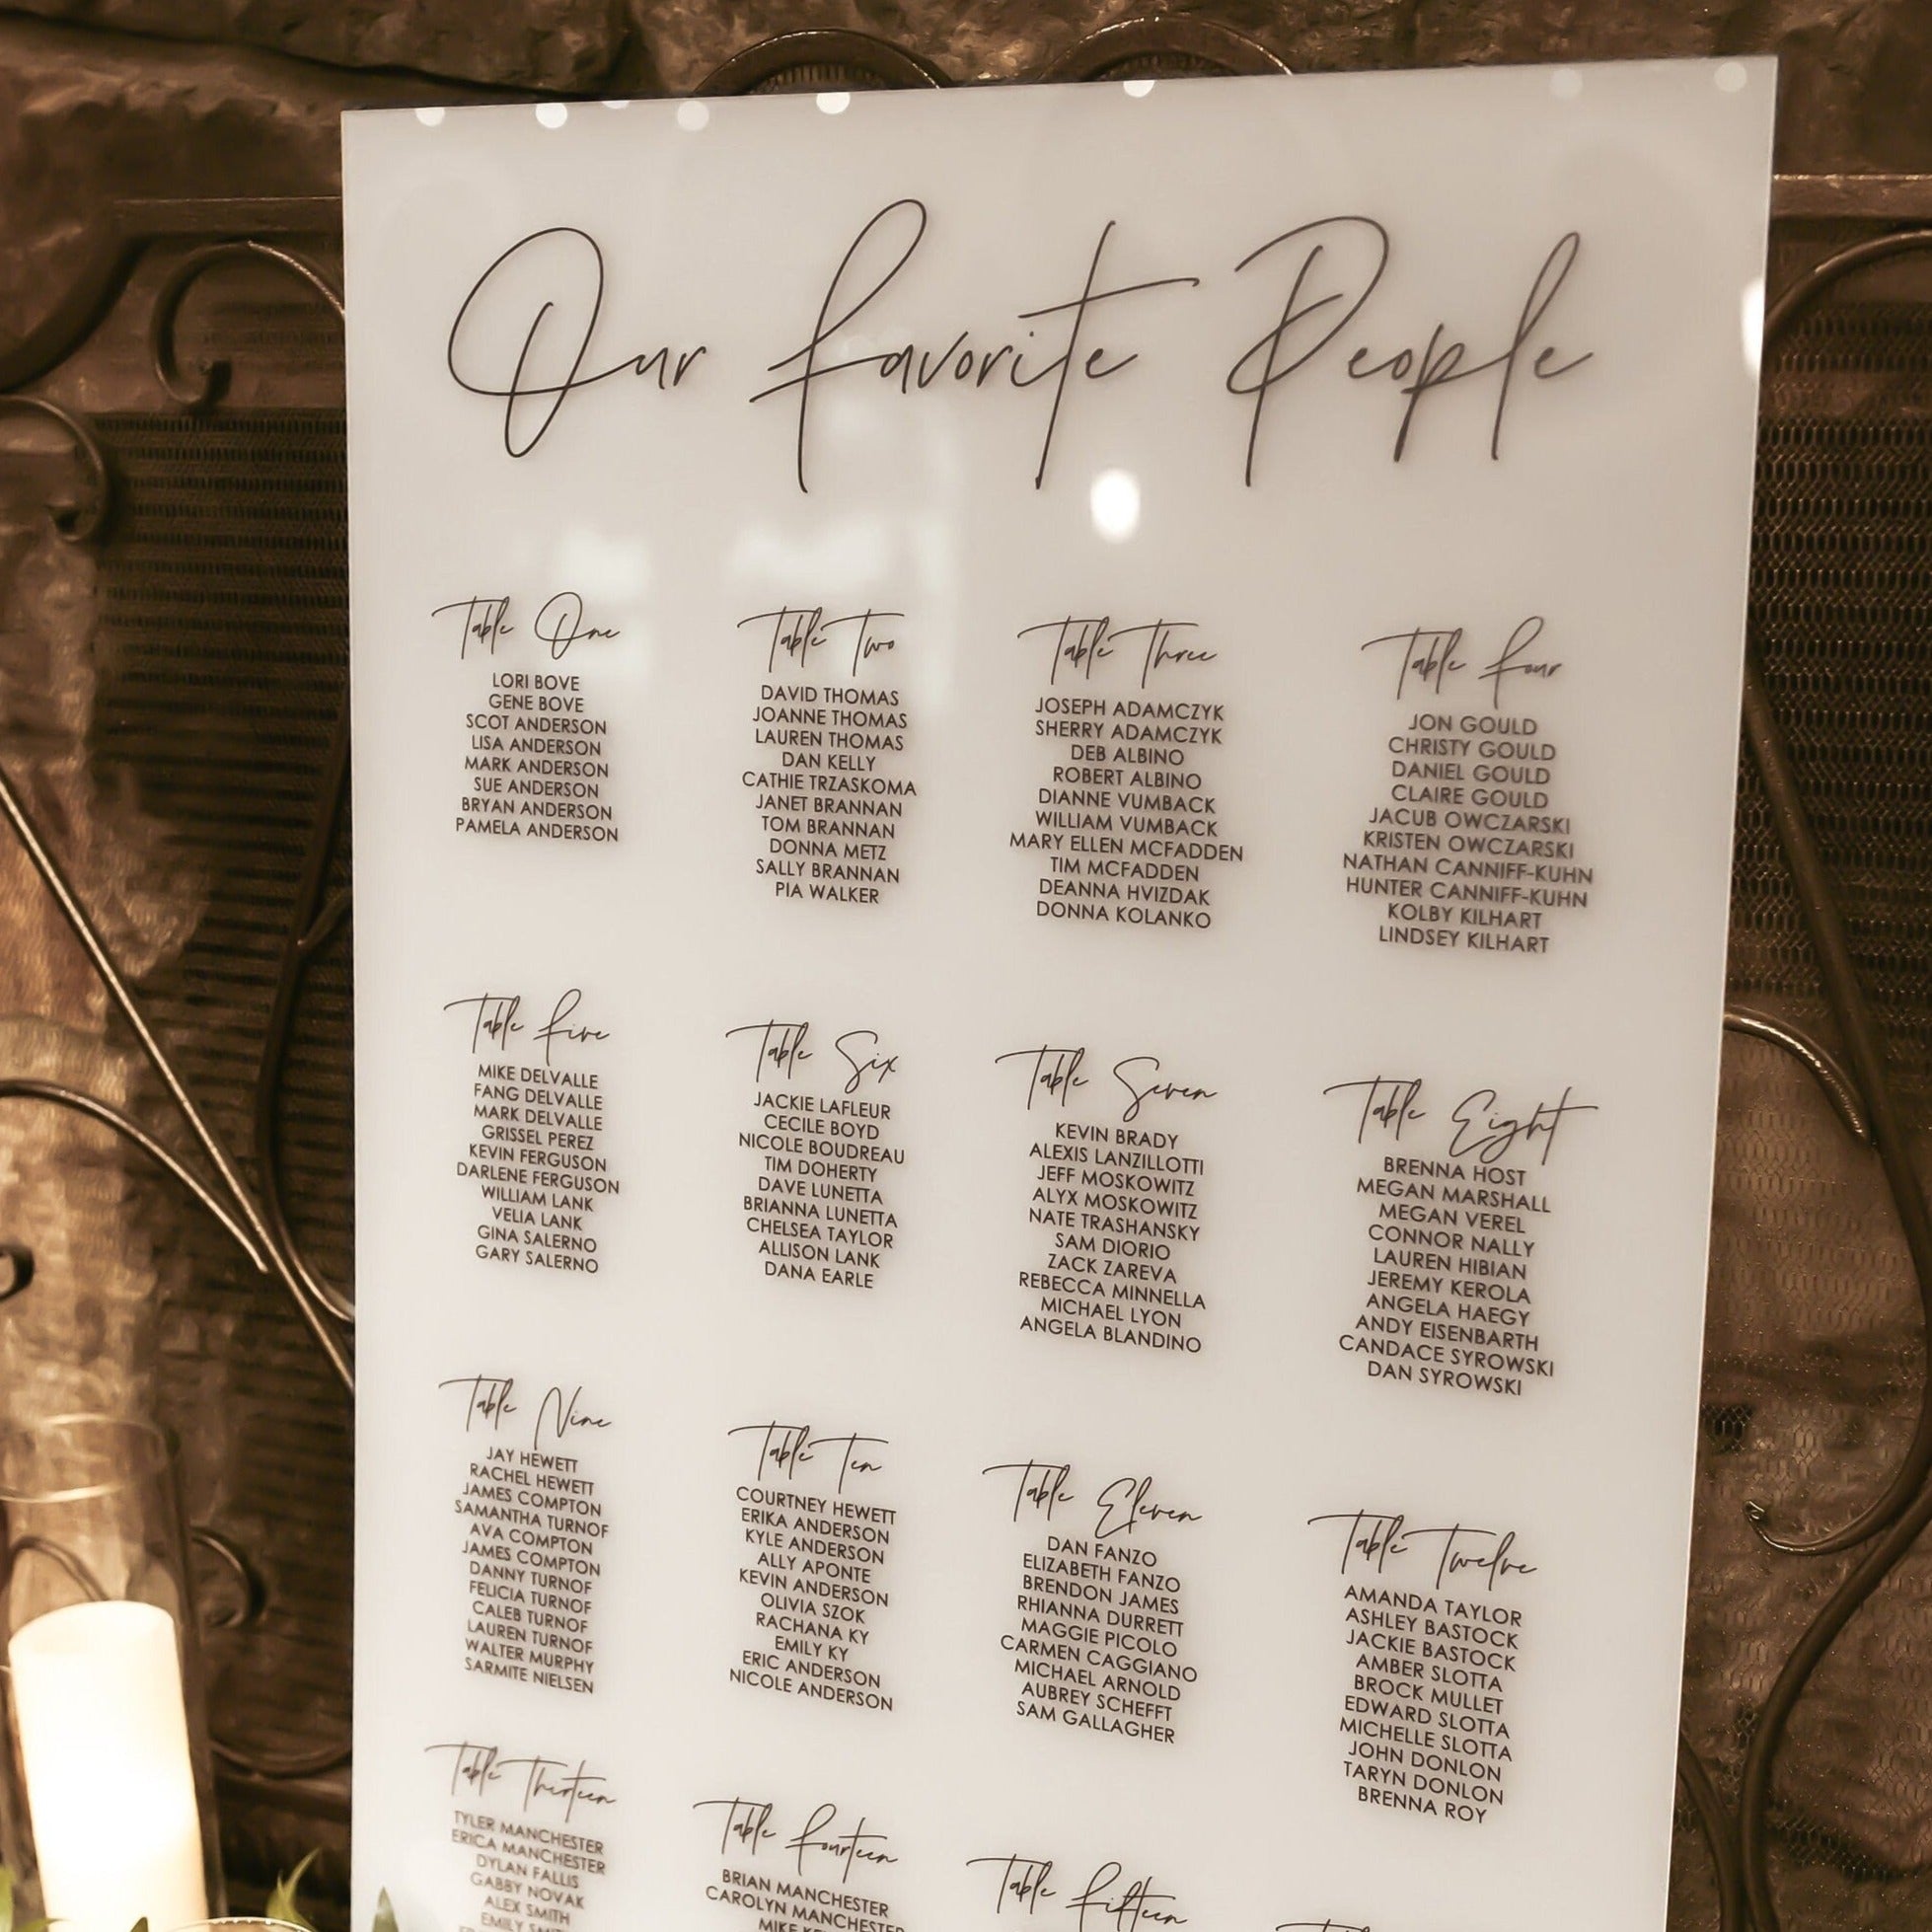 Our Favorite People
Table One
LORI BOVE
GENE BOVE
SCOT ANDERSON
LISA ANDERSON
MARK ANDERSON
SUE ANDERSON
BRYAN ANDERSON
PAMELA ANDERSON
Table Two
DAVID THOMAS
JOANNE THOMAS
LAUREN THOMAS
DAN KELLY
CATHIE TRZASKOMA
JANET BRANNAN
TOM BRANNAN
DONNA METZ
SALLY BRANNAN
PIA WALKER
Table Three
JOSEPH ADAMCZYK
SHERRY ADAMCZYK
DEB ALBINO
ROBERT ALBINO
DIANNE VUMBACK
WILLIAM VUMBACK
MARY ELLEN MCFADDEN
TIM MCFADDEN
DEANNA HVIZDAK
DONNA KOLANKO
Table Four
JON GOULD
CHRISTY GOULD
DANIEL GOULD
CLAIRE GOULD
JACUB OWCZARSKI
KRISTEN OWCZARSKI
NATHAN CANNIFF-KUHN
HUNTER CANNIFF-KUHN
KOLBY KILHART
LINDSEY KILHART
Table Five
MIKE DELVALLE
FANG DELVALLE
MARK DELVALLE
GRISSEL PEREZ
KEVIN FERGUSON
DARLENE FERGUSON
WILLIAM LANK
VELIA LANK
GINA SALERNO
GARY SALERNO
Table Six
JACKIE LAFLEUR
CECILE BOYD
NICOLE BOUDREAU
TIM DOHERTY
DAVE LUNETTA
BRIANNA LUNETTA
CHELSEA TAYLOR
ALLISON LANK
DANA EARLE
Table Seven
KEVIN BRADY
ALEXIS LANZILLOTTI
JEFF MOSKOWITZ
ALYX MOSKOWITZ
NATE TRASHANSKY
SAM DIORIO
ZACK ZAREVA
REBECCA MINNELLA
MICHAEL LYON
ANGELA BLANDINO
Table Eight
BRENNA HOST
MEGAN MARSHALL
MEGAN VEREL
CONNOR NALLY
LAUREN HIBIAN
JEREMY KEROLA
ANGELA HAEGY
ANDY EISENBARTH
CANDACE SYROWSKI
DAN SYROWSKI
Table Nine
JAY HEWETT
RACHEL HEWETT
JAMES COMPTON
SAMANTHA TURNOF
AVA COMPTON
JAMES COMPTON
DANNY TURNOF
FELICIA TURNOF
CALEB TURNOF
LAUREN TURNOF
WALTER MURPHY
SARMITE NIELSEN
Table Ten
COURTNEY HEWETT
ERIKA ANDERSON
KYLE ANDERSON
ALLY APONTE
KEVIN ANDERSON
OLIVIA SZOK
RACHANA KY
EMILY KY
ERIC ANDERSON
NICOLE ANDERSON
Table Eleven
DAN FANZO
ELIZABETH FANZO
BRENDON JAMES
RHIANNA DURRETT
MAGGIE PICOLO
CARMEN CAGGIANO
MICHAEL ARNOLD
AUBREY SCHEFFT
SAM GALLAGHER
Table Twelve
AMANDA TAYLOR
ASHLEY BASTOCK
JACKIE BASTOCK
AMBER SLOTTA
BROCK MULLET
EDWARD SLOTTA
MICHELLE SLOTTA
JOHN DONLON
TARYN DONLON
BRENNA ROY
Table Thirteen
TYLER MANCHESTER
ERICA MANCHESTER
DYLAN FALLIS
GABBY NOVAK
ALEX SMITH
EMILY
Table Fourteen
BRIAN MANCHESTER
CAROLYN MANCHESTER
MIKE
Table Fifteen